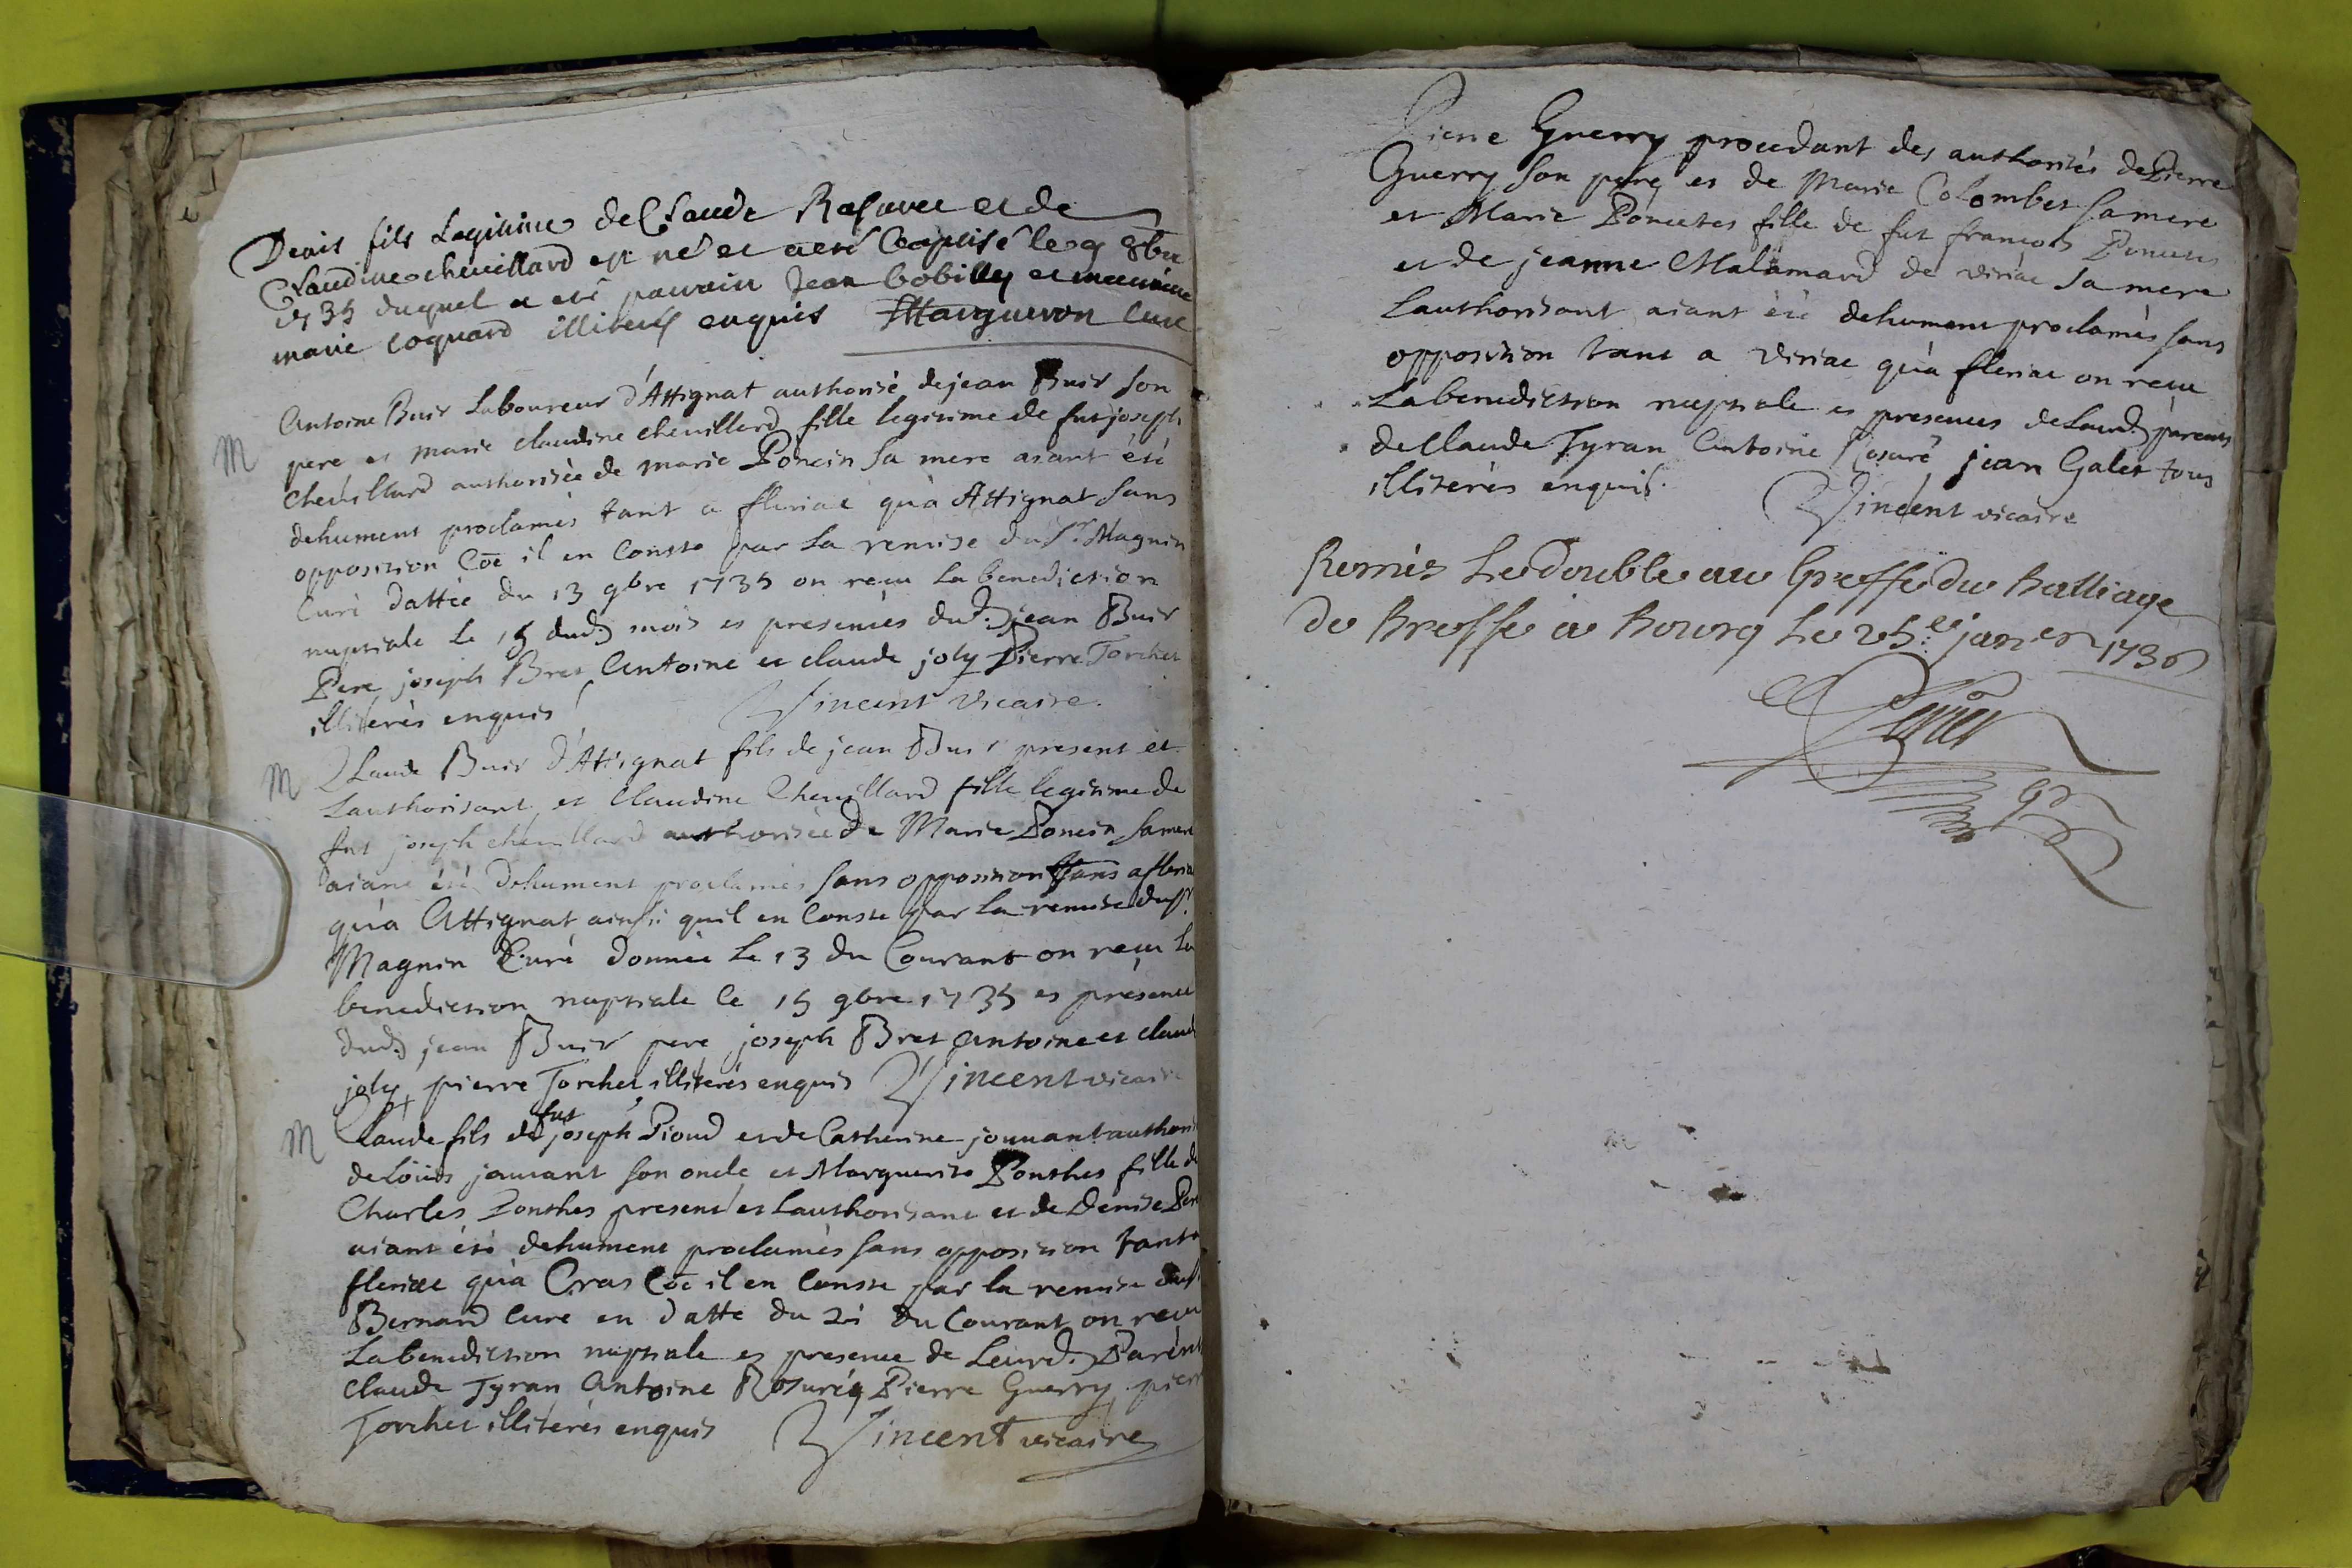 Denis fils Legitime de Claude Rasurel et de
Claudine chevillard est né et a eté baptisé le 9 8bre
1735 duquel a eté parrain Jean bobilly et marraine
marie coquard illiteres enquis Margueron Curé
M
Antoine Buir Laboureur d'Attignat authorisé de jean Buir son
pere et marie claudine chevillard fille legitime de fut joseph
chevillard authorisée de marie Poncin sa mere aiant été
dehument proclamés tant a fleriac qu'a Attignat sans
opposition Coe il en Conste par la remise du Sr. Magnin
Curé dattée du 13 9bre 1735 on reçu la benediction
nuptiale le 15 dud. mois es presences dud. jean Buir
Pere joseph Bret Antoine et claude joly Pierre Torchet
illiterés enquis Vincent vicaire.
M
Claude Buir d'Attignat fils de jean Buir present et
Lauthorisant et Claudine Chevillard fille legitime de
fut joseph chevillard authorisée de Marie Poncin sa mere
aiant été dehument proclamés sans opposition tans a fleria
qu'a Attignat ainsi quil en Conste par la remise du Sr.
Magnin Curé donnée le 13 du Courant on reçu la
benediction nuptiale le 15 9bre 1735 es presence
dud. jean Buir pere joseph Bret Antoine et claud
joly pierre Torchet illiterés enquis Vincent vicaire
M
Claude fils de fut joseph Pioud et de Catherine jouuant authori
de Loüis jouuant son oncle et Marguerite Ponthet fille de
Charles Ponthet present et Lauthorisant et de Denise
aiant été dehument proclamés sans opposition tant a
fleriac qu'a Cras Coe il en Conste par la remise du Sr
Bernard Curé en datte du du Courant on reçu
La benediction nuptiale es presence de Leurd. Parent
claude Tyran Antoine Rosuré Pierre Guerry pierr
Torchet illiterés enquis Vincent vicaire
Pierre Guerry procedant des authorités de Pierre
Guerry son pere et de Marie Colombet sa mere
et Marie Poncetet fille de fut francois Poncetet
et de jeanne Malamard de viriac sa mere
Lauthorisant aiant été dehument proclamés sans
opposition tant a viriac qu'a fleriac on reçu
La benediction nuptiale es presences de Leurd. parents
de Claude Tyran Antoine Rosuré jean Galet tous
illiterés enquis. Vincent vicaire
Remis Le double au Greffe du Balliage
de Bresse a Bourg Le 25.e janer 1736